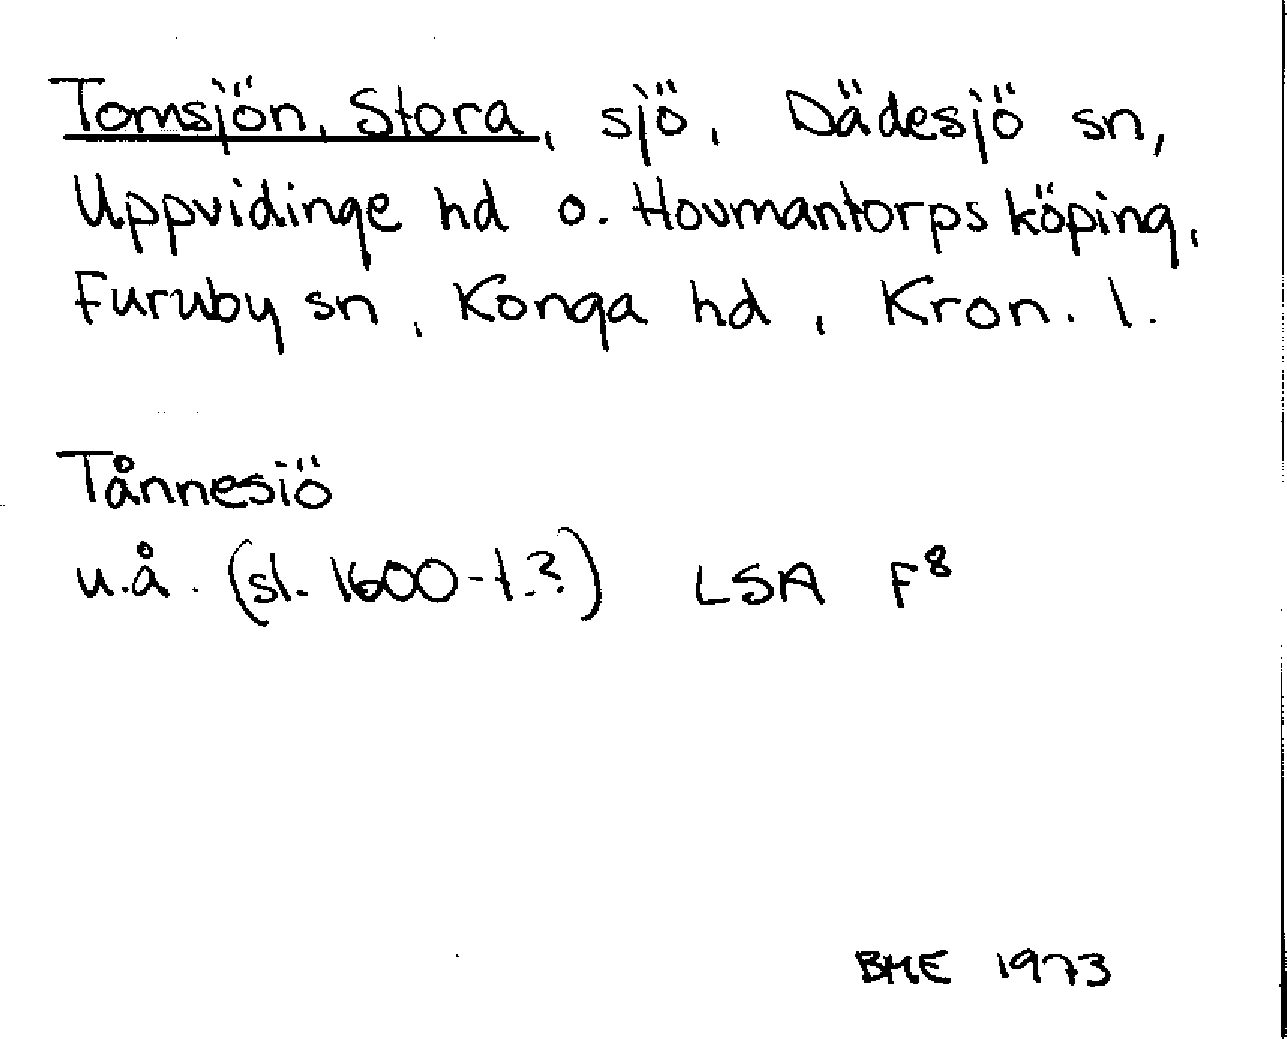 Tomsjön, Stora, sjö, Dädesjö sn,
Uppvidinge hd o. Hovmantorps köping,
Furuby sn, Konga hd, Kron. l.
Tånnesiö
u.å. (sl. 1600-t.?) LSA F⁸
BME 1973